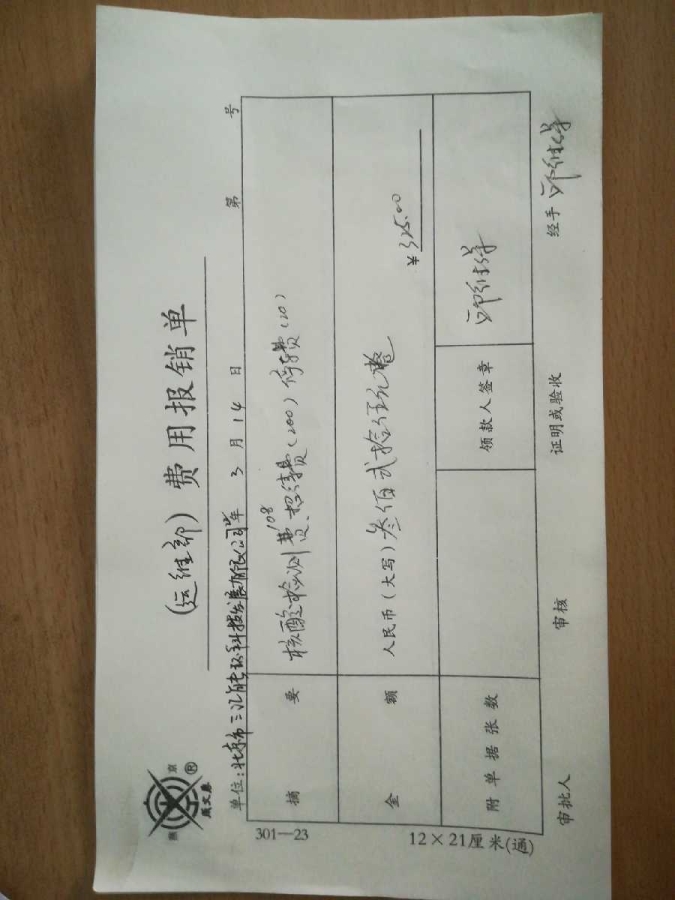 燕 京 ®
广文康
(运维部)费用报销单
单位:北京市三汇能环科技发展有限公司 年 3 月 14 日 第 号
摘 要 核酸检测费108、招待费(200)停车费(20)
金 额 人民币(大写)叁佰贰拾伍元整 ¥325.00
附单据张数 领款人签章
审批人 审核 证明或验收 经手
301—23 12×21厘米(通)